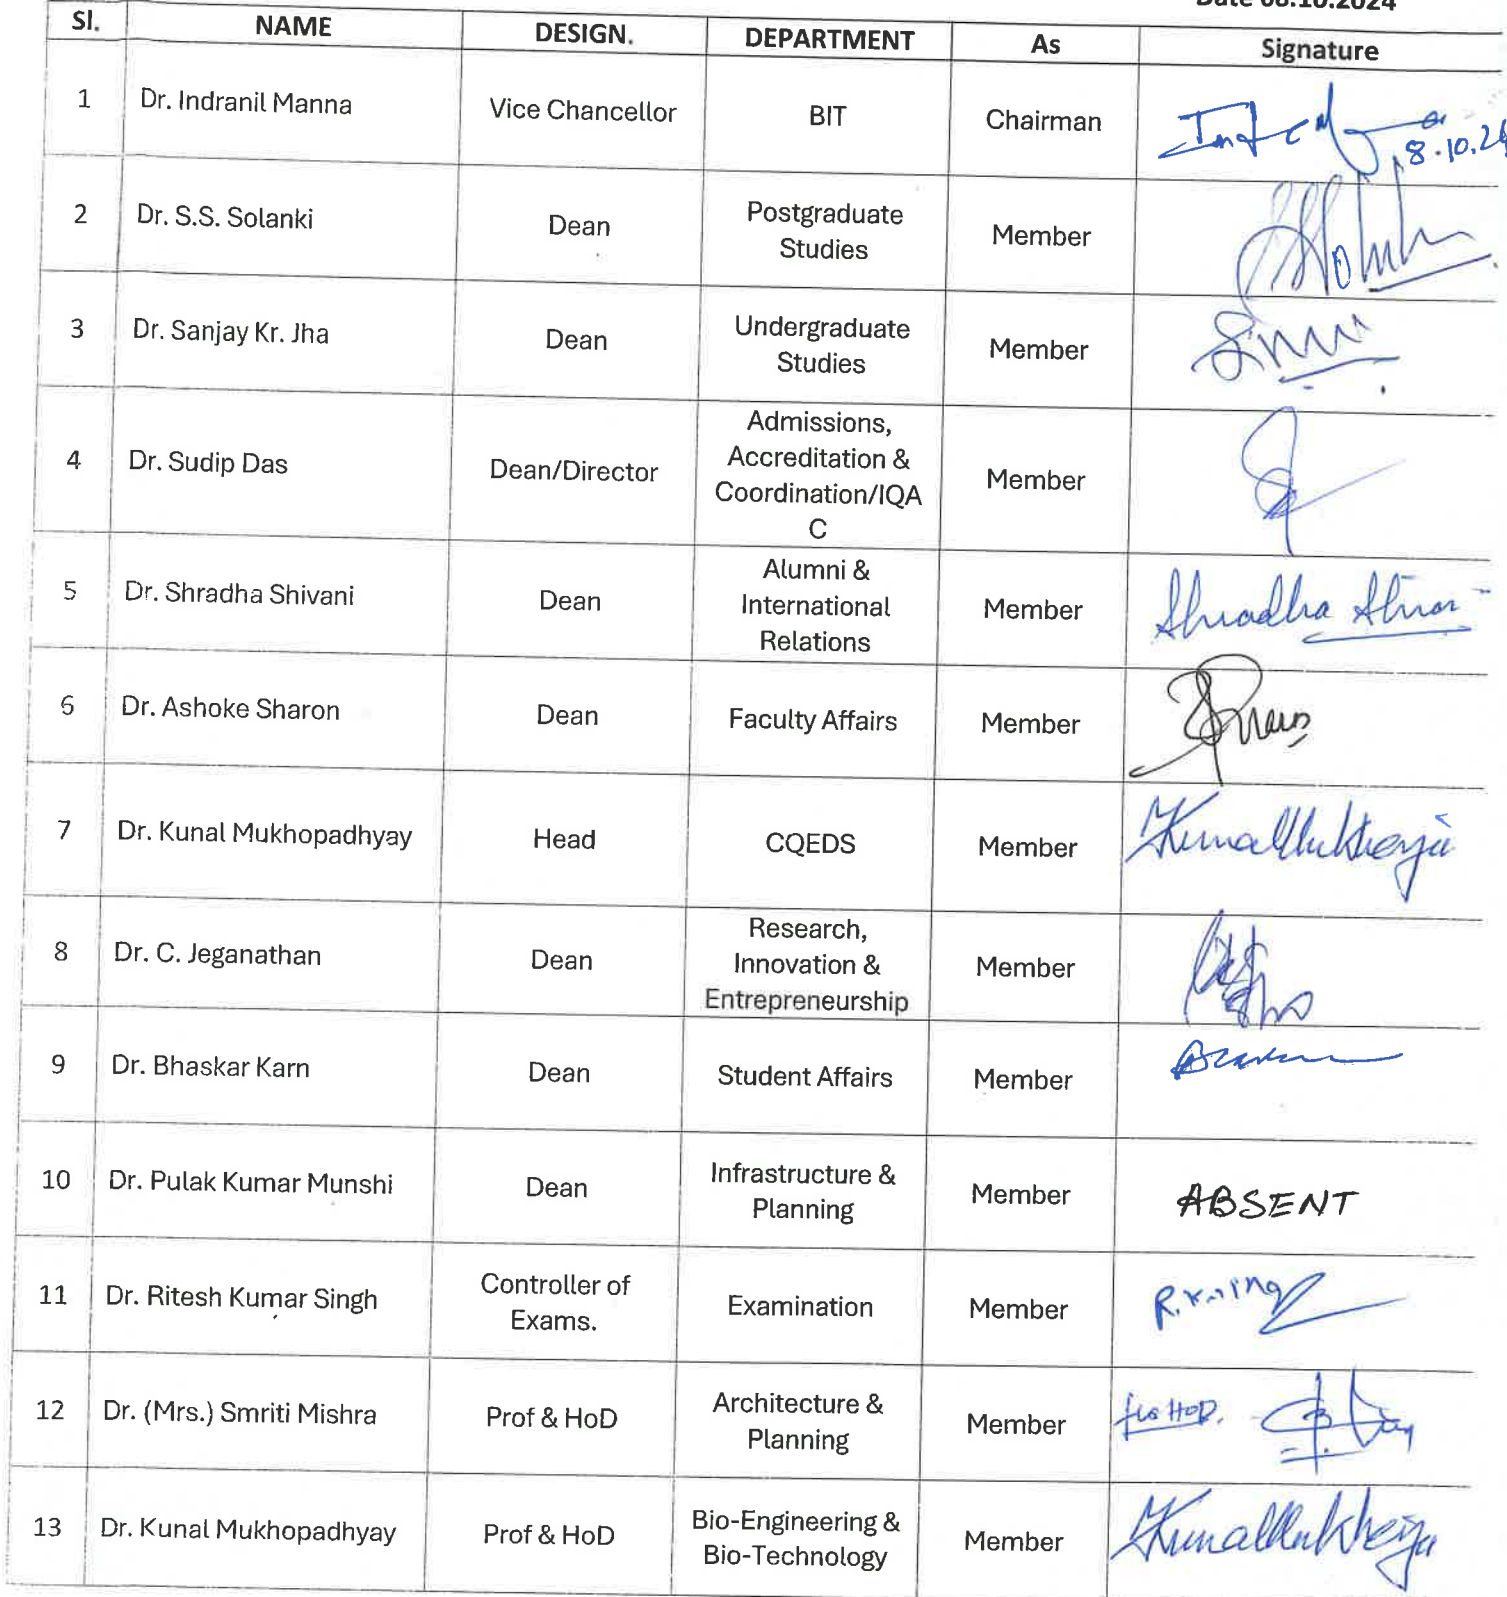 Date 08.10.2024
Sl. NAME DESIGN. DEPARTMENT As Signature
1 Dr. Indranil Manna Vice Chancellor BIT Chairman
8.10.24
2 Dr. S.S. Solanki Dean Postgraduate Studies Member
3 Dr. Sanjay Kr. Jha Dean Undergraduate Studies Member
4 Dr. Sudip Das Dean/Director Admissions, Accreditation & Coordination/IQAC Member
5 Dr. Shradha Shivani Dean Alumni & International Relations Member Shradha
6 Dr. Ashoke Sharon Dean Faculty Affairs Member
7 Dr. Kunal Mukhopadhyay Head CQEDS Member Kunal Mukherjee
8 Dr. C. Jeganathan Dean Research, Innovation & Entrepreneurship Member
9 Dr. Bhaskar Karn Dean Student Affairs Member
10 Dr. Pulak Kumar Munshi Dean Infrastructure & Planning Member ABSENT
11 Dr. Ritesh Kumar Singh Controller of Exams. Examination Member
12 Dr. (Mrs.) Smriti Mishra Prof & HoD Architecture & Planning Member HOD.
13 Dr. Kunal Mukhopadhyay Prof & HoD Bio-Engineering & Bio-Technology Member Kunal Mukherjee